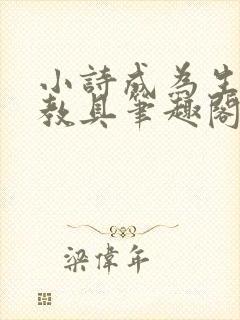 小詩成為生
教具筆趣閣
梁偉年